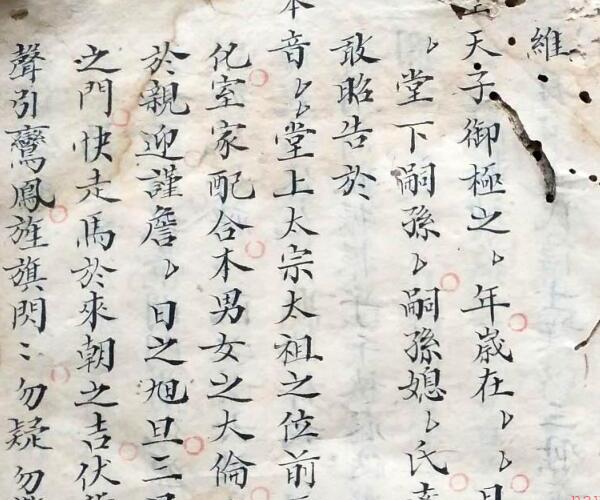 維
天子御極之〻年歲在〻〻月
〻堂下嗣孫〻嗣孫媳〻氏
敢昭告於
本音〻〻堂上太宗太祖之位前
化室家配合本男女之大倫
於親迎謹詹〻日之旭旦三
之門快走馬於來朝之吉伏
聲引鸞鳳旌旗閃〻勿疑勿